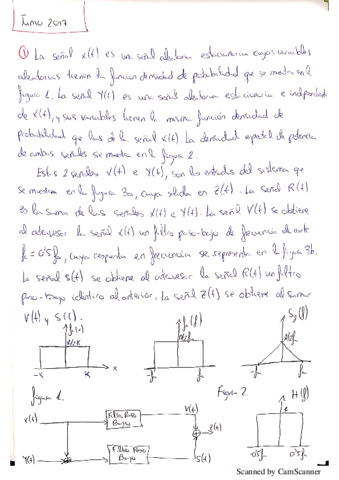 Junio 2017
① La señal X(t) es una señal aleatoria estacionaria cuyas variables
aleatorias tienen la función densidad de probabilidad que se muestra en la
figura 1. La señal Y(t) es una señal aleatoria estacionaria e independiente
de X(t), y sus variables tienen la misma función densidad de
probabilidad que las de la señal X(t). La densidad espectral de potencia
de ambas señales se muestra en la figura 2.
Estas 2 señales X(t) e Y(t), son las entradas del sistema que
se muestra en la figura 3a, cuya salida es Z(t). La señal R(t)
es la suma de las señales X(t) e Y(t). La señal V(t) se obtiene
al atravesar la señal X(t) un filtro paso-bajo de frecuencia de corte
fc = 0'5fm, cuya respuesta en frecuencia se representa en la figura 3b.
La señal S(t) se obtiene al atravesar la señal R(t) un filtro
paso-bajo idéntico al anterior. La señal Z(t) se obtiene al sumar
V(t) y S(t).
-K K x
-fm fm
-fm fm
Figura 1.
Figura 2.
H(f)
X(t) Filtro Paso Bajo V(t)
Z(t)
Y(t) Filtro Paso Bajo S(t)
0'5fm 0'5fm
Scanned by CamScanner